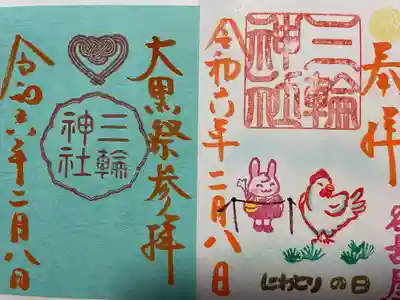 大黒祭参拝
三輪
神社
令和六年二月八日
奉拝
三輪
神社
令和六年二月八日
にわとりの日